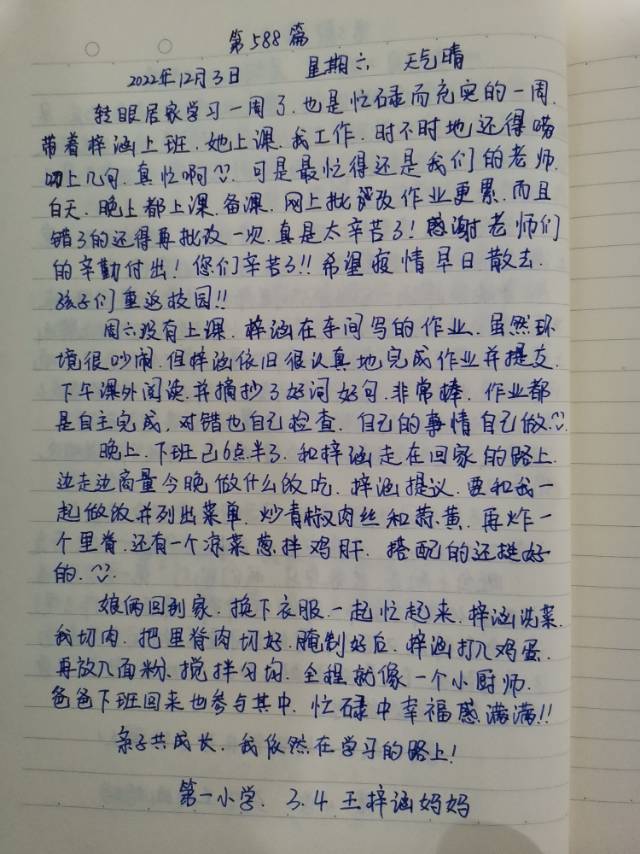 第588篇
2022年12月3日 星期六 天气晴
转眼居家学习一周了.也是忙碌而充实的一周.
带着梓涵上班.她上课.我工作.时不时地还得唠
叨上几句.真忙啊.可是最忙得还是我们的老师.
白天.晚上都上课.备课.网上批改作业更累.而且
错了的还得再批改一次.真是太辛苦了!感谢老师们
的辛勤付出!您们辛苦了!!希望疫情早日散去.
孩子们重返校园!!
周六没有上课.梓涵在车间写的作业.虽然环
境很吵闹.但梓涵依旧很认真地完成作业并提交.
下午课外阅读.并摘抄了好词好句.非常棒.作业都
是自主完成.对错也自己检查.自己的事情自己做.
晚上.下班已6点半了.和梓涵走在回家的路上.
边走边商量今晚做什么饭吃.梓涵提议.要和我一
起做饭并列出菜单.炒青椒肉丝和蒜黄.再炸一
个里脊.还有一个凉菜葱拌鸡肝.搭配的还挺好
的.
娘俩回到家.换下衣服.一起忙起来.梓涵洗菜.
我切肉.把里脊肉切好.腌制好后.梓涵打入鸡蛋.
再放入面粉.搅拌匀均.全程就像一个小厨师.
爸爸下班回来也参与其中.忙碌中幸福感满满!!
亲子共成长.我依然在学习的路上!
第一小学.3.4王梓涵妈妈